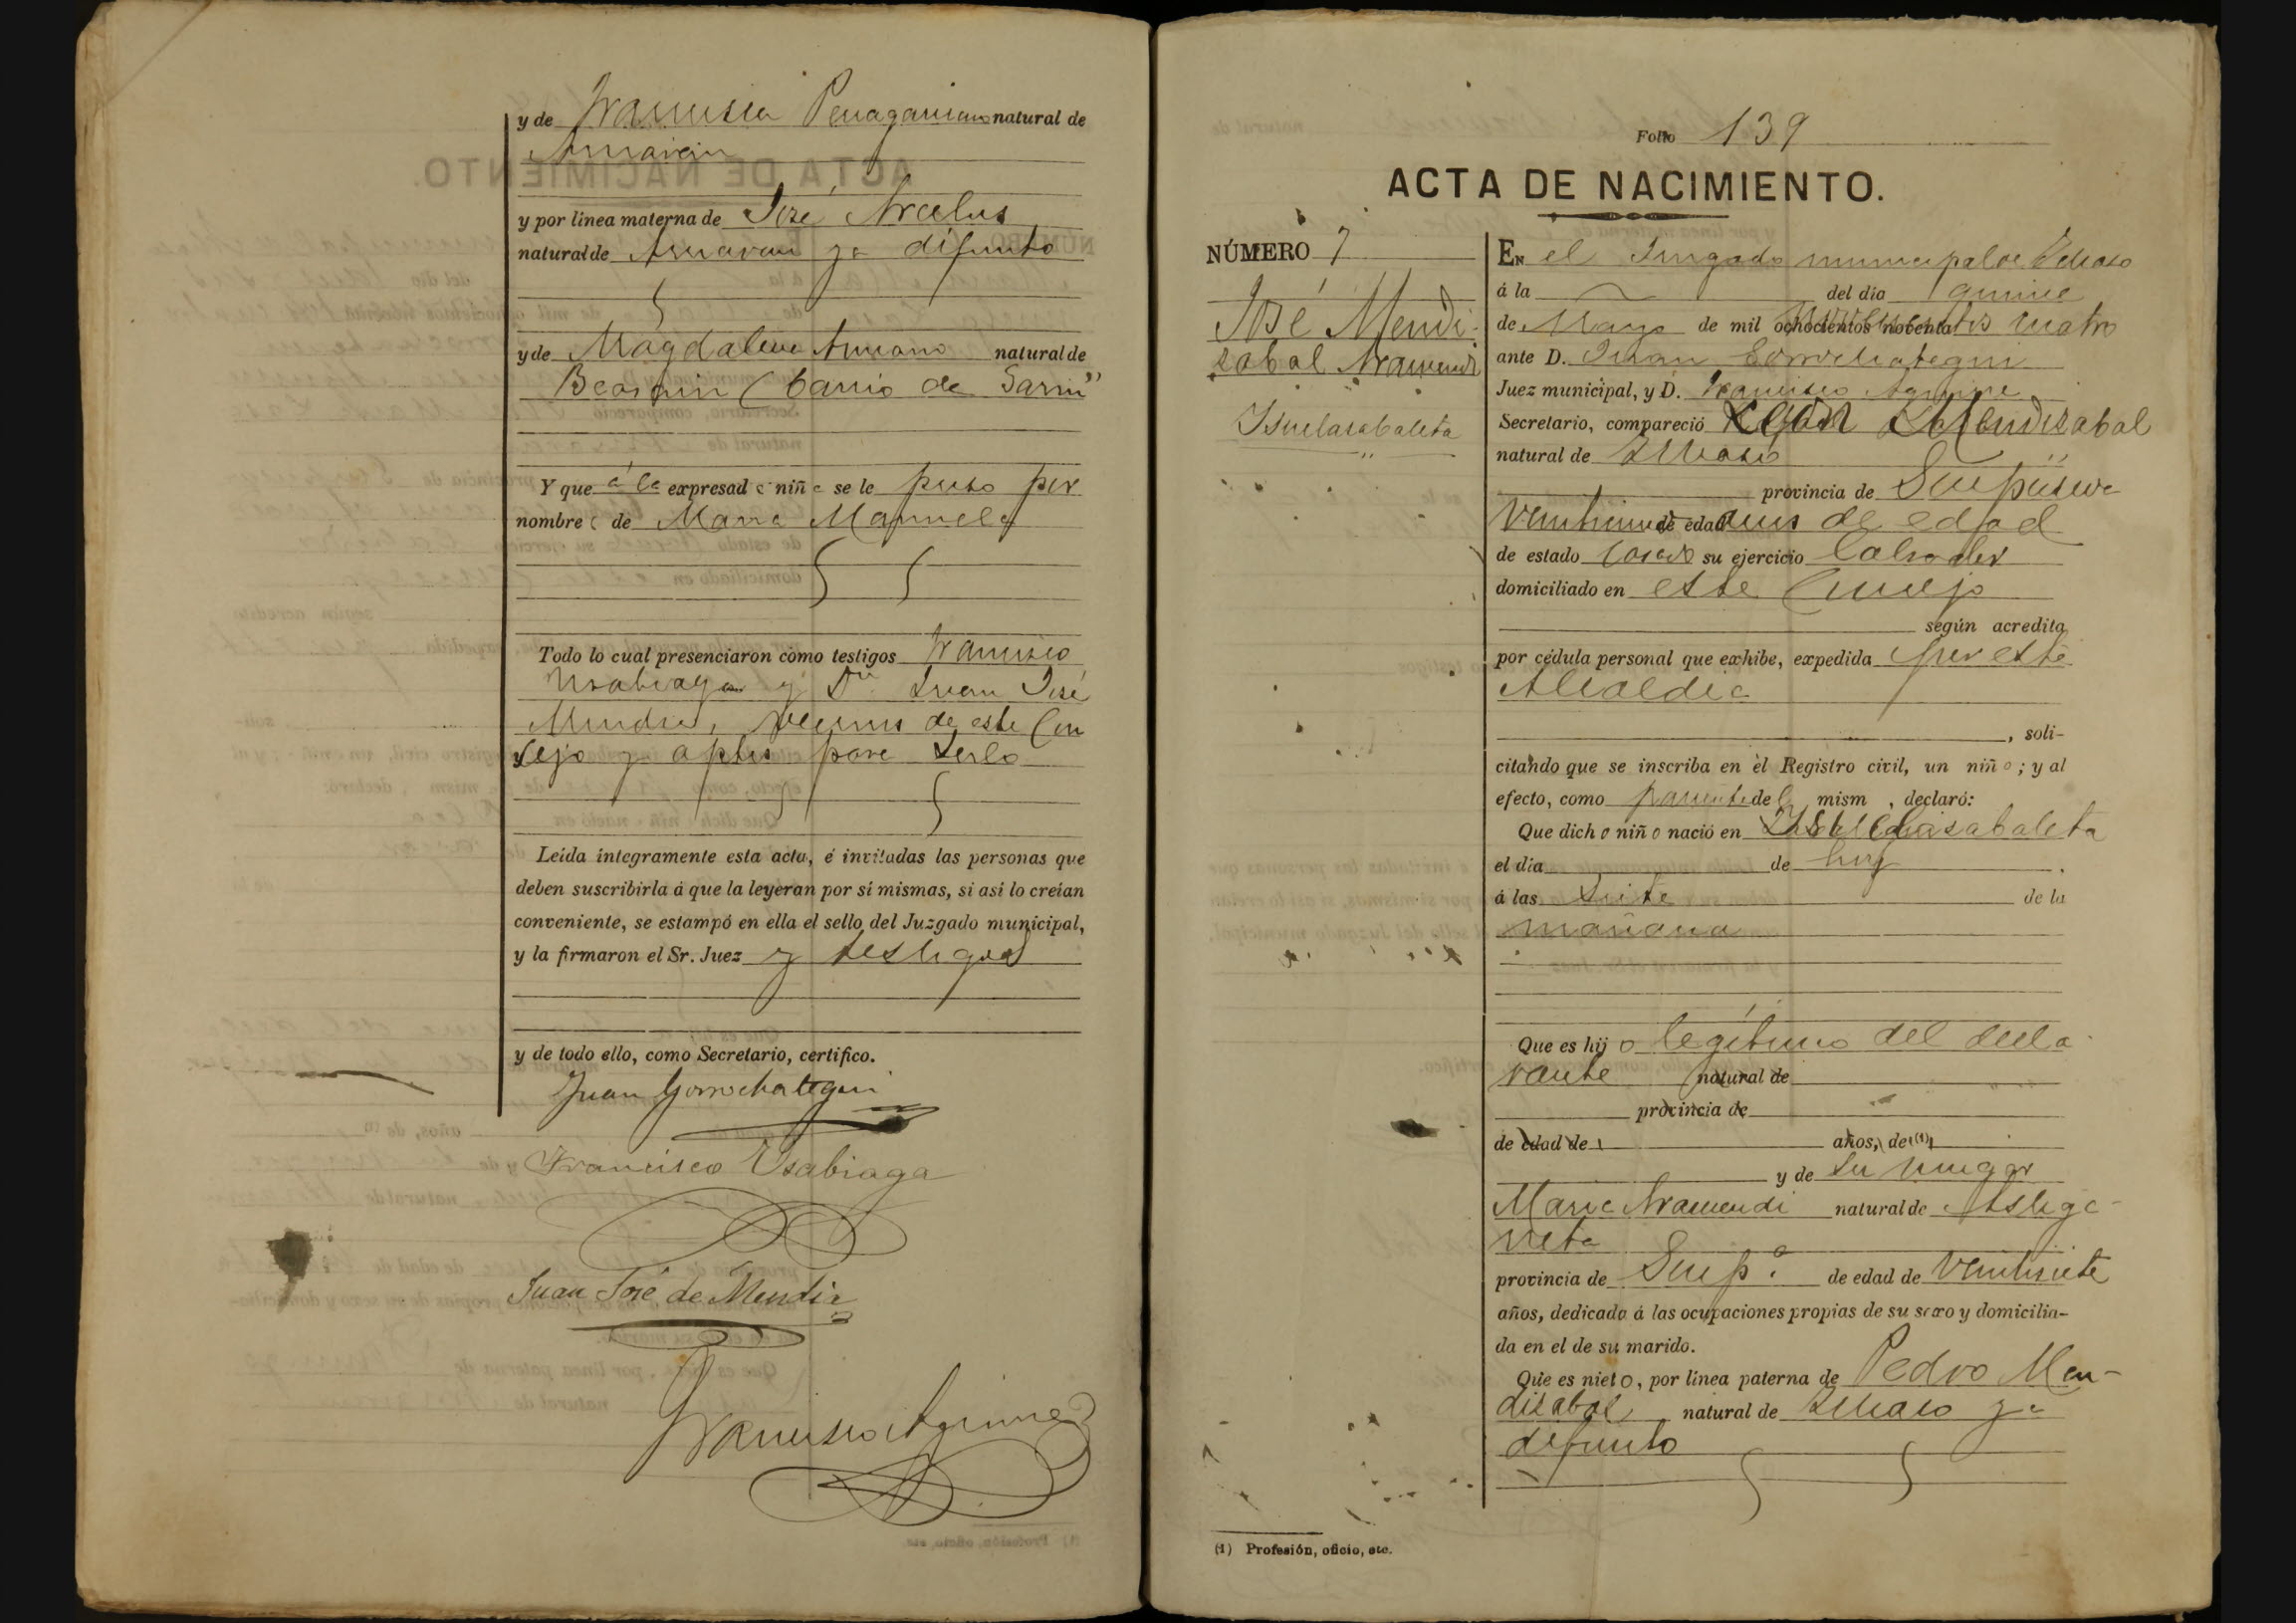 y de Francisca Penagaricano natural de
Amavan
y por línea materna de José Arcelus
natural de Arruaran ya difunto
y de Magdalena Amiano natural de
Beasain (barrio de Garin"
Y que á la expresada niña se le puso por
nombre de Maria Manuela
Todo lo cual presenciaron como testigos Francisco
Usabiaga y Dn Juan José
Mendia, vecinos de este Con
sejo y aptos para serlo
Leída íntegramente esta acta, é invitadas las personas que
deben suscribirla á que la leyeran por sí mismas, si así lo creían
conveniente, se estampó en ella el sello del Juzgado municipal,
y la firmaron el Sr. Juez y testigos
y de todo ello, como Secretario, certifico.
Juan Gorrochategui
Francisco Usabiaga
Juan José de Mendia
Francisco Aguirre
Folio 139
ACTA DE NACIMIENTO.
NÚMERO 7
José Mendi-
zabal Aramendi
Ysuelasabaleta
En el Jurgado municipal de Ichaso
á la del dia quince
de Mayo de mil ochocientos noventa novecientos cuatro
ante D. Juan Gorrochategui
Juez municipal, y D. Francisco Aguirre
Secretario, compareció Mendizabal
natural de Ichaso
provincia de Guipúzcoa
de edad años de edad
de estado casado su ejercicio labrador
domiciliado en este Concejo
según acredita
por cédula personal que exhibe, expedida por esta
Alcaldia
, soli-
citando que se inscriba en el Registro civil, un niño; y al
efecto, como pariente del mism , declaró:
Que dicho niño nació en
el dia de hoy
á las siete de la
mañana
Que es hijo legítimo del decla-
rante natural de
provincia de
de edad de años, de (1)
y de su muger
Maria Aramendi natural de Astiga-
rreta
provincia de Guip.ª de edad de veintisiete
años, dedicada á las ocupaciones propias de su sexo y domicilia-
da en el de su marido.
Que es nieto, por línea paterna de Pedro Men-
dizabal natural de Ichaso ya
difunto
(1) Profesión, oficio, etc.